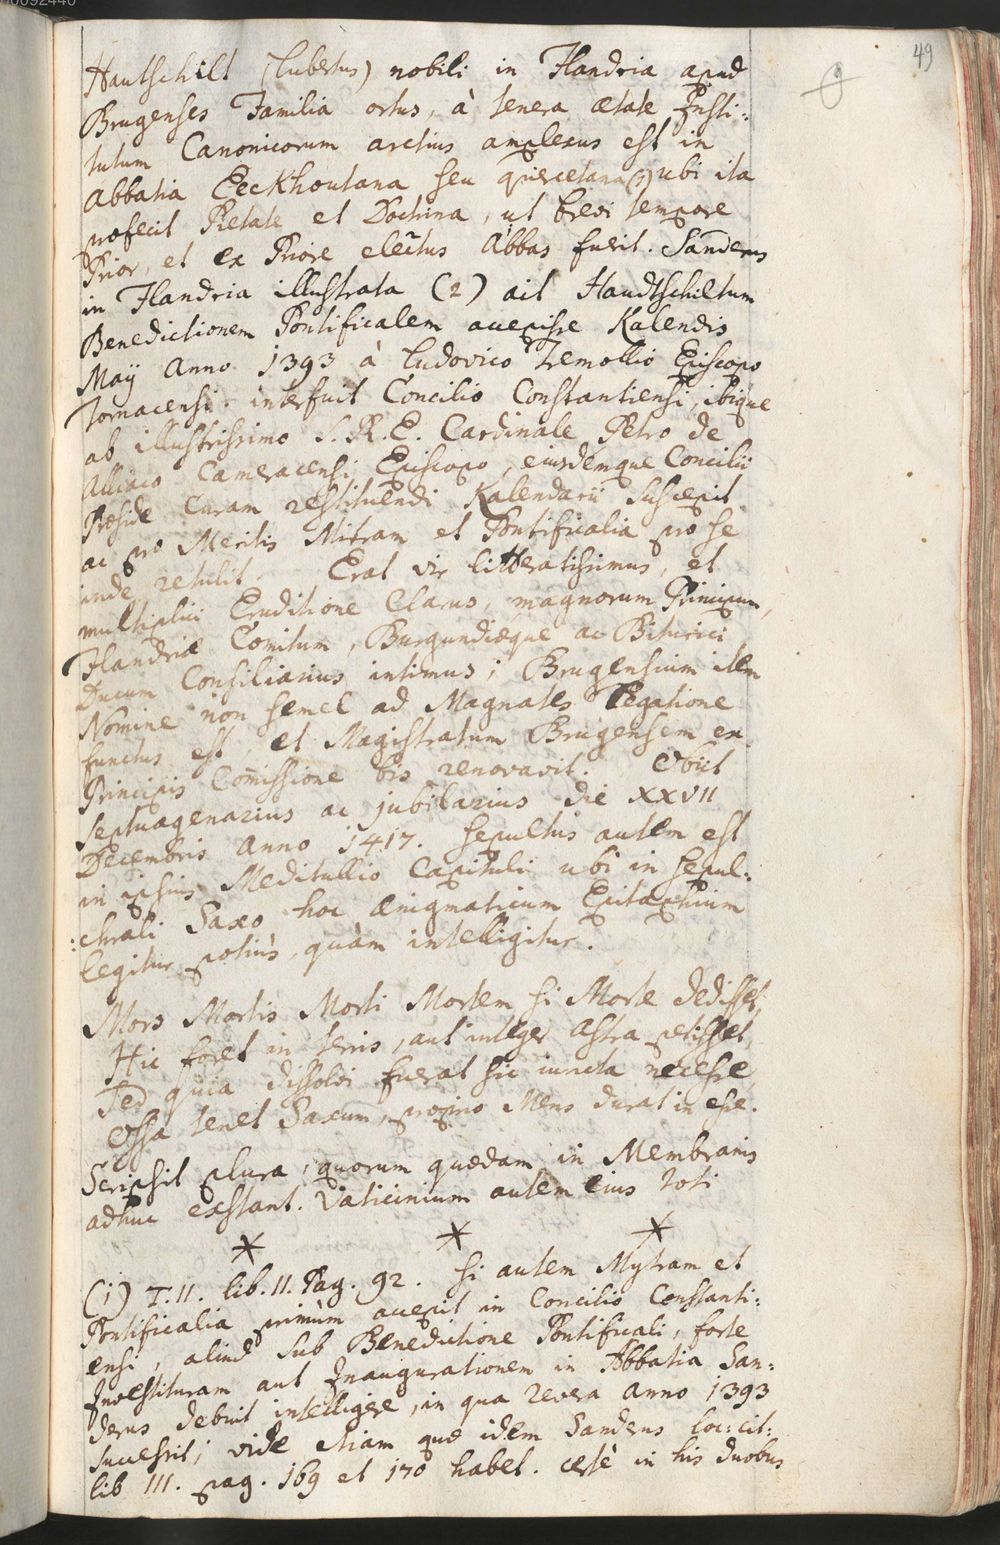 49
Hautschilt (Lubertus) nobili in Flandria apud
Brugenses Familia ortus, à tenera ætate Insti:
tutum Canonicorum arctius amplexus est in
Abbatia Eeckhoutana seu quercetana (1) ubi ita
profecit Pietate et Doctrina, ut brevi tempore
Prior, et ex Priore electus Abbas fuerit. Sanderus
in Flandria illustrata (2) ait Haudtschiltum
Benedictionem Pontificalem accepisse Kalendis
Maÿ Anno 1393 à Ludovico Tremollio Episcopo
Tornacensi. interfuit Concilio Constantiensi, ibique
ab illustrissimo S.R.E. Cardinale Petro de
Alliaco Cameracensi Episcopo, eiusdemque Concilii
Præside Curam restituendi Kalendarii suscepit
ac pro Meritis Mitram et Pontificalia pro se
inde retulit. Erat vir litteratissimus, et
multiplici Eruditione Clarus, magnorum Principum,
Flandriæ Comitum, Burgundiæque ac Biturici
Ducum Consiliarius intimus; Brugensium item
Nomine non semel ad Magnates Legatione
functus est, et Magistratum Brugensem ex
Principis Com̄issione bis renovavit. Obiit
septuagenarius ac jubilarius die XXVII
Decembris Anno 1417. sepultus autem est
in ipsius Meditullio Capituli ubi in sepul:
:chrali Saxo hoc ænigmaticum Epitaphium
legitur potiùs, quàm intelligitur.
Mors Mortis Morti Mortem si Morte dedisset,
Hic foret in terris, aut integer astra petisset,
Sed quia dissolvi fuerat sic iuncta necesse,
Ossa tenet Saxum, proprio Mens durat in esse.
Scripsit plura, quorum quædam in Membranis
adhuc exstant. Vaticinium autem eius toti
* * *
(1) T.II. lib.II. Pag. 92. si autem Mytram et
Pontificalia primùm accepit in Concilio Constanti:
ensi, aliud sub Benedictione Pontificali, forte
Investituram aut Inaugurationem in Abbatia San:
derus debuit intelligere, in qua revera anno 1393
successit; vide etiam quæ idem Sanderus loc: cit:
lib III. pag. 169 et 170 habet. certè in his duobus